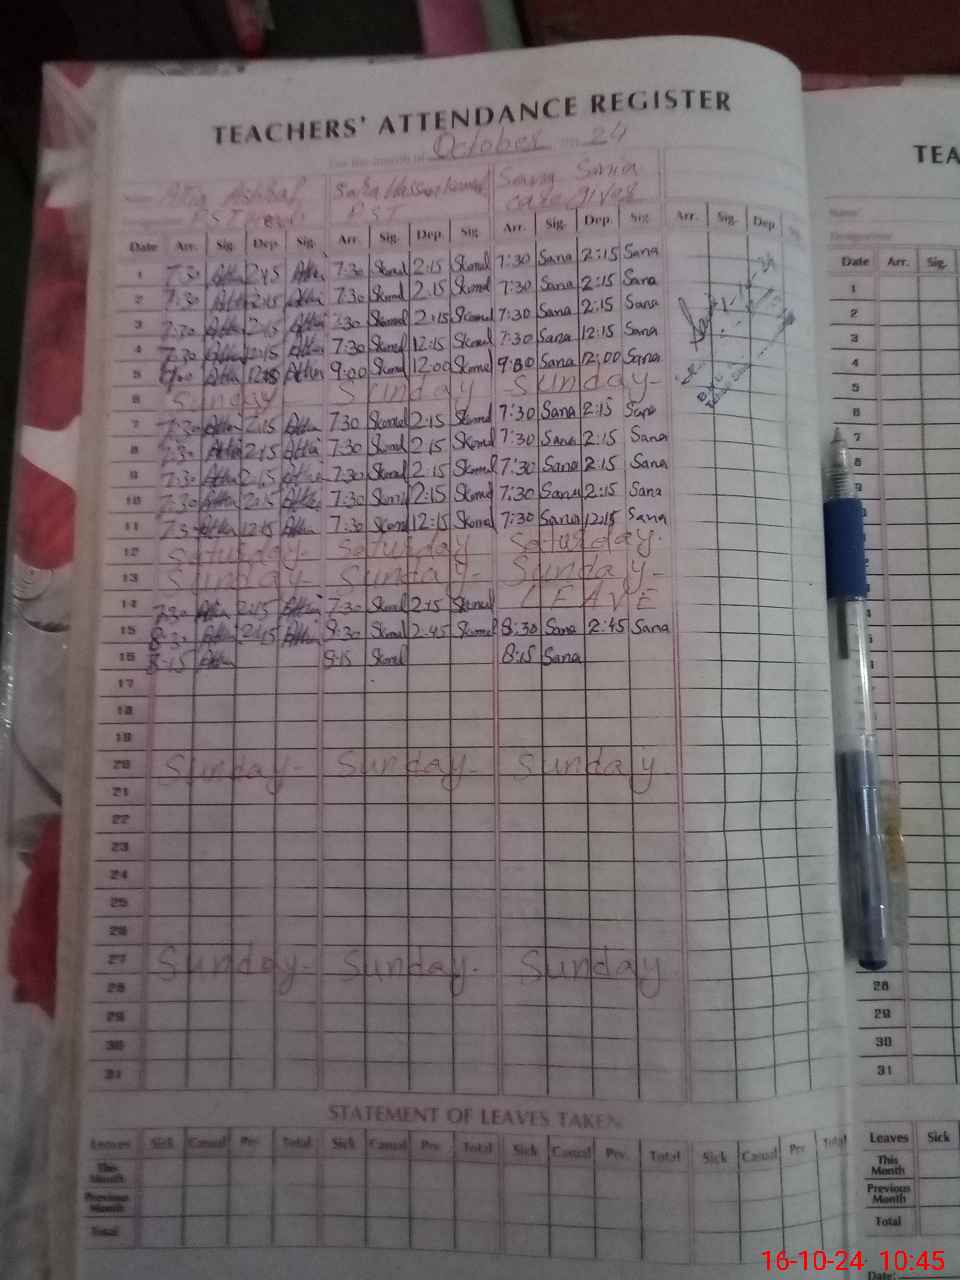 TEACHERS' ATTENDANCE REGISTER
TEA
For the month of October 24
Name Attia Ashraf Safia Hassan Sana Sonia
PST PST care giver
Date Arr. Sig. Dep. Sig. Arr. Sig. Dep. Sig. Arr. Sig. Dep. Sig. Arr. Sig. Dep Sig. Date Arr. Sig.
1 7:30 Attia 2:15 Attia 7:30 Skomel 2:15 Skomel 7:30 Sana 2:15 Sana
2 7:30 Attia 2:15 Attia 7:30 Skomel 2:15 Skomel 7:30 Sana 2:15 Sana
3 7:30 Attia 2:15 Attia 7:30 Skomel 2:15 Skomel 7:30 Sana 2:15 Sana
4 7:30 Attia 12:15 Attia 7:30 Skomel 12:15 Skomel 7:30 Sana 12:15 Sana
5 9:00 Attia Attia 9:00 Skomel 12:00 Skomel 9:00 Sana 12:00 Sana
6 Sunday Sunday Sunday-
7 7:30 Attia 2:15 Attia 7:30 Skomel 2:15 Skomel 7:30 Sana 2:15 Sana
8 7:30 Attia 2:15 Attia 7:30 Skomel 2:15 Skomel 7:30 Sana 2:15 Sana
9 7:30 Attia 2:15 Attia 7:30 Skomel 2:15 Skomel 7:30 Sana 2:15 Sana
10 7:30 Attia 2:15 Attia 7:30 Skomel 2:15 Skomel 7:30 Sana 2:15 Sana
11 7:30 Attia 12:15 Attia 7:30 Skomel 12:15 Skomel 7:30 Sana 12:15 Sana
12 Saturday- Saturday Saturday.
13 Sunday- Sunday- Sunday-
14 7:30 Attia 2:15 Attia 7:30 Skomel 2:15 Skomel LEAVE
15 8:30 Attia 2:45 Attia 8:30 Skomel 2:45 Skomel 8:30 Sana 2:45 Sana
16 8:15 Attia 8:15 Skomel 8:15 Sana
17
18
19
20 Sunday- Sunday- Sunday.
21
22
23
24
25
26
27 Sunday- Sunday. Sunday.
28
29
30
31
STATEMENT OF LEAVES TAKEN
Leaves Sick Casual Prv. Total Sick Casual Prv. Total Sick Casual Prv. Total Sick Casual Prv Total Leaves Sick
This Month This Month
Previous Month Previous Month
Total Total
16-10-24 10:45